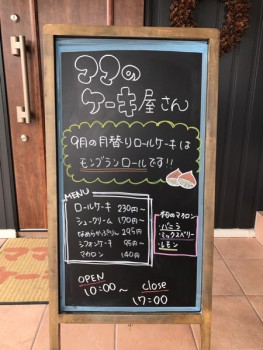 ママの
ケーキ屋さん
9月の月替りロールケーキは
モンブランロールです!!
MENU
ロールケーキ 230円~
シュークリーム 170円~
なめらかぷりん 295円
シフォンケーキ 95円~
マカロン 140円
今日のマカロン
・バニラ
・ミックスベリー
・レモン
OPEN
10:00~
close
17:00